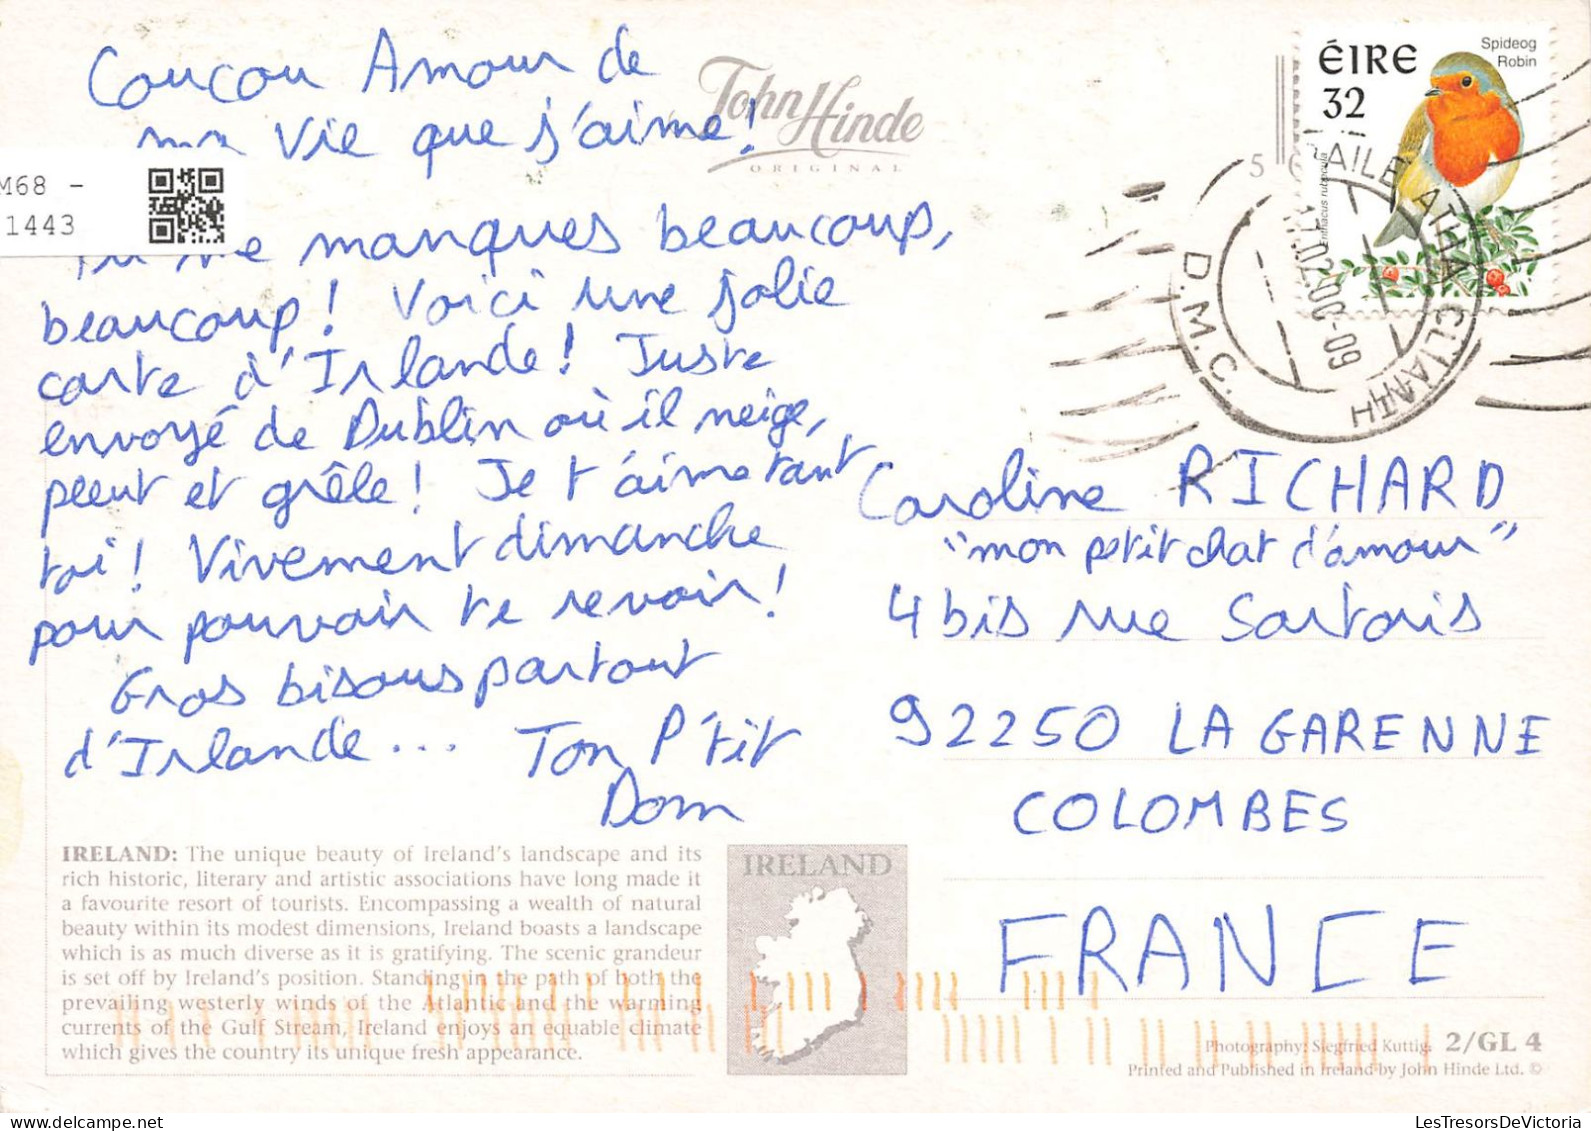 Coucou Amour de
ma vie que j'aime!
Tu me manques beaucoup,
beaucoup! Voici une jolie
carte d'Irlande! Juste
envoyé de Dublin où il neige,
pleut et grêle! Je t'aime tant
toi! Vivement dimanche
pour pouvoir te revoir!
Gros bisous partout
d'Irlande... Ton P'tit
Dom
M68 -
1443
John Hinde
ORIGINAL
ÉIRE
32
Spideog
Robin
Erithacus rubecula
AILE ATHA CLIATH
D.M.C.
Caroline RICHARD
"mon petit chat d'amour"
4 bis rue Sartoris
92250 LA GARENNE
COLOMBES
FRANCE
IRELAND: The unique beauty of Ireland's landscape and its
rich historic, literary and artistic associations have long made it
a favourite resort of tourists. Encompassing a wealth of natural
beauty within its modest dimensions, Ireland boasts a landscape
which is as much diverse as it is gratifying. The scenic grandeur
is set off by Ireland's position. Standing in the path of both the
prevailing westerly winds of the Atlantic and the warming
currents of the Gulf Stream, Ireland enjoys an equable climate
which gives the country its unique fresh appearance.
IRELAND
Photography: Siegfried Kuttig. 2/GL 4
Printed and Published in Ireland by John Hinde Ltd. ©
LesTresorsDeVictoria